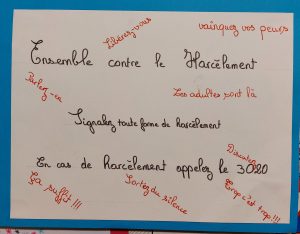 Libérez-vous
vainquez vos peurs
Ensemble contre le Harcèlement
Parlez-en
Les adultes sont là
Signalez toute forme de harcèlement
Discutez
En cas de harcèlement appelez le 3020
Ça suffit !!!
Sortez du silence
Trop c'est trop !!!!